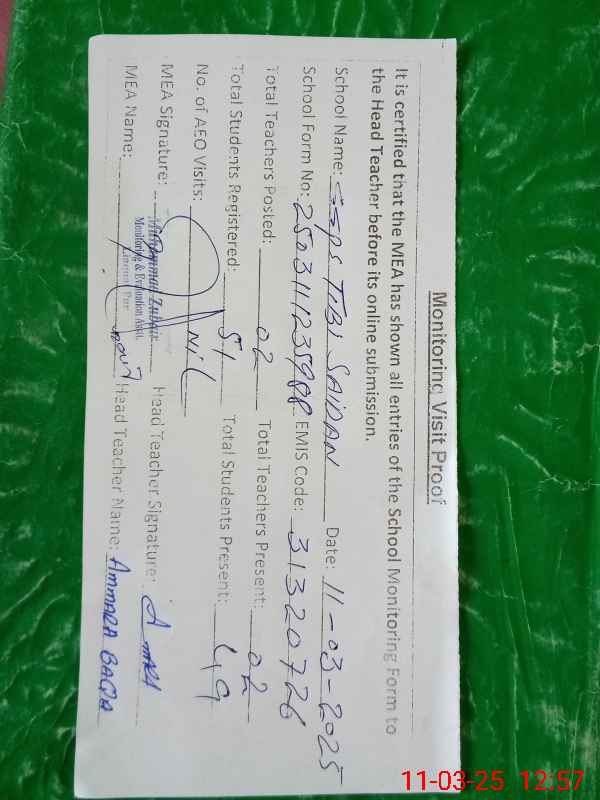 Monitoring Visit Proof
It is certified that the MEA has shown all entries of the School Monitoring Form to
the Head Teacher before its online submission.
School Name: GGPS TIBI SAIDAN Date: 11-03-2025
School Form No: EMIS Code: 31320726
Total Teachers Posted: 02 Total Teachers Present: 02
Total Students Registered: 51 Total Students Present: 49
No. of AEO Visits: Nil
MEA Signature: Muhammad Zubair Head Teacher Signature: Amara
Monitoring & Evaluation Asstt.
MEA Name: Head Teacher Name: AMMARA
11-03-25 12:57